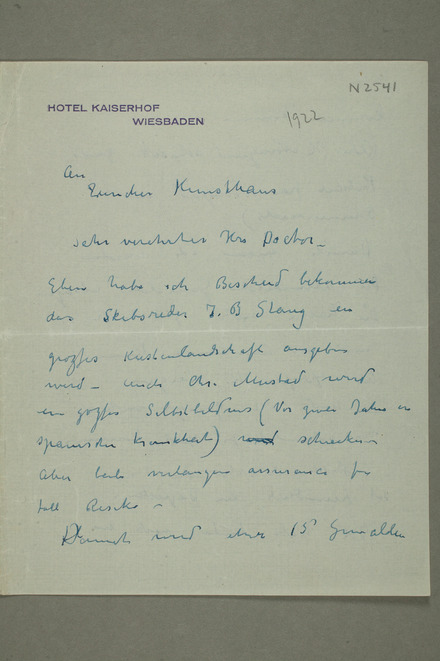 N 2541
HOTEL KAISERHOF
WIESBADEN
1922
An
Zuricher Kunsthaus
sehr verehrter Hrr Doctor –
Eben habe ich Bescheid bekommen
das Skibsreder J. B Stang en
grozfes Küstenlandschaft ausgeben
wird – und Chr. Mustad wird
en gozfes Selbstbildnis (Vor zwei Jahre in
spanischer Krankheit) schicken
Aber beide verlangen assurance for
full Resiko –
Damit wird etwa 15 Gemälden